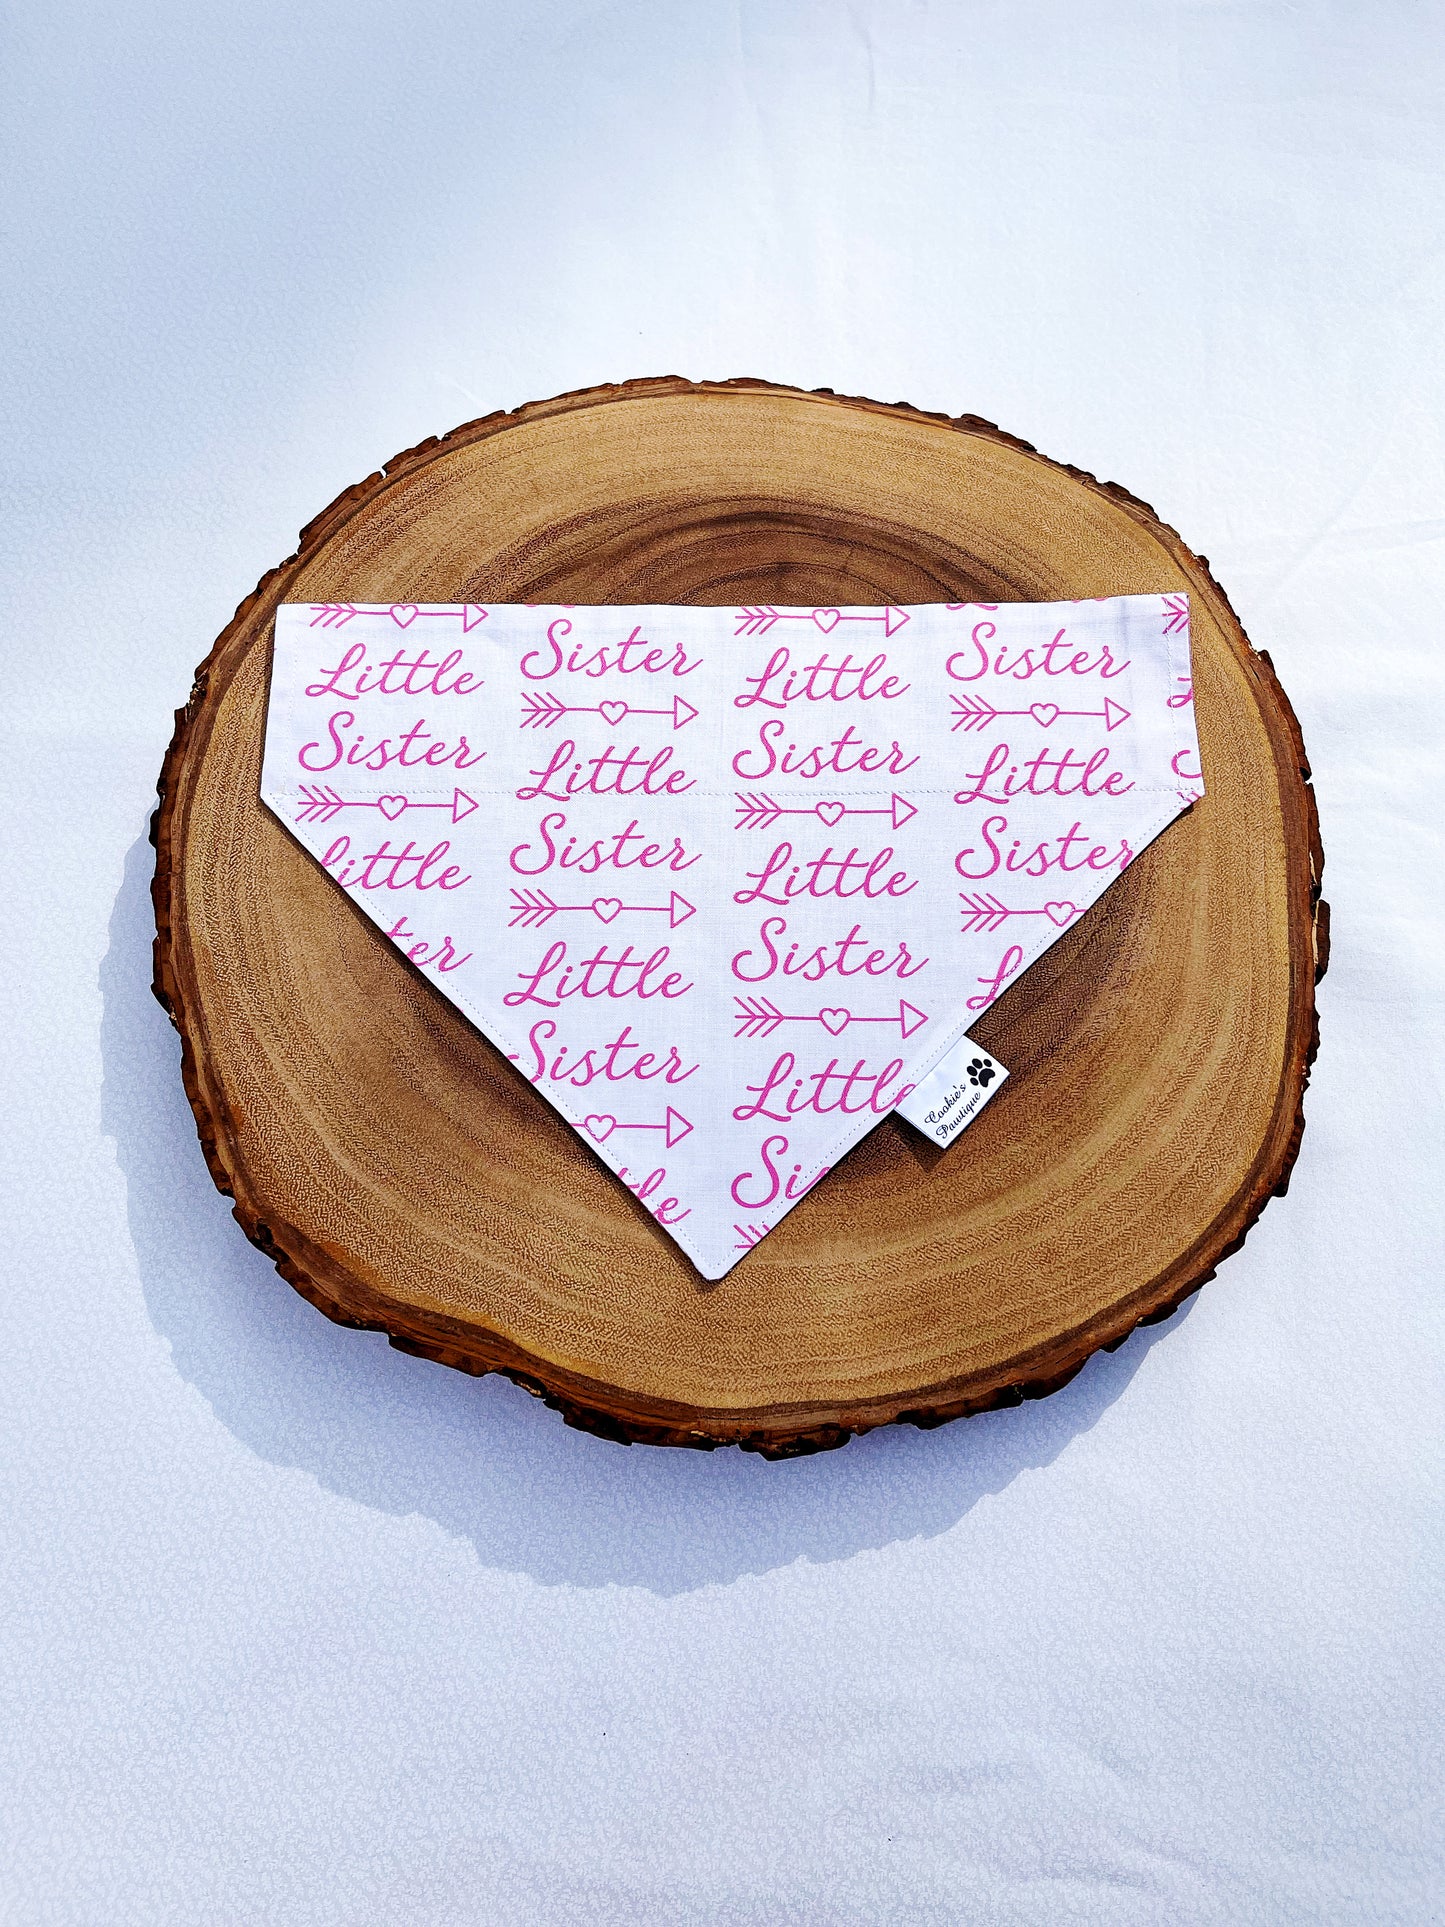 Little
Sister
Little
ter
Sister
Little
Sister
Little
Sister
tle
Little
Sister
Little
Sister
Little
Si
Sister
Little
Sister
L
Cookie's
Pawtique